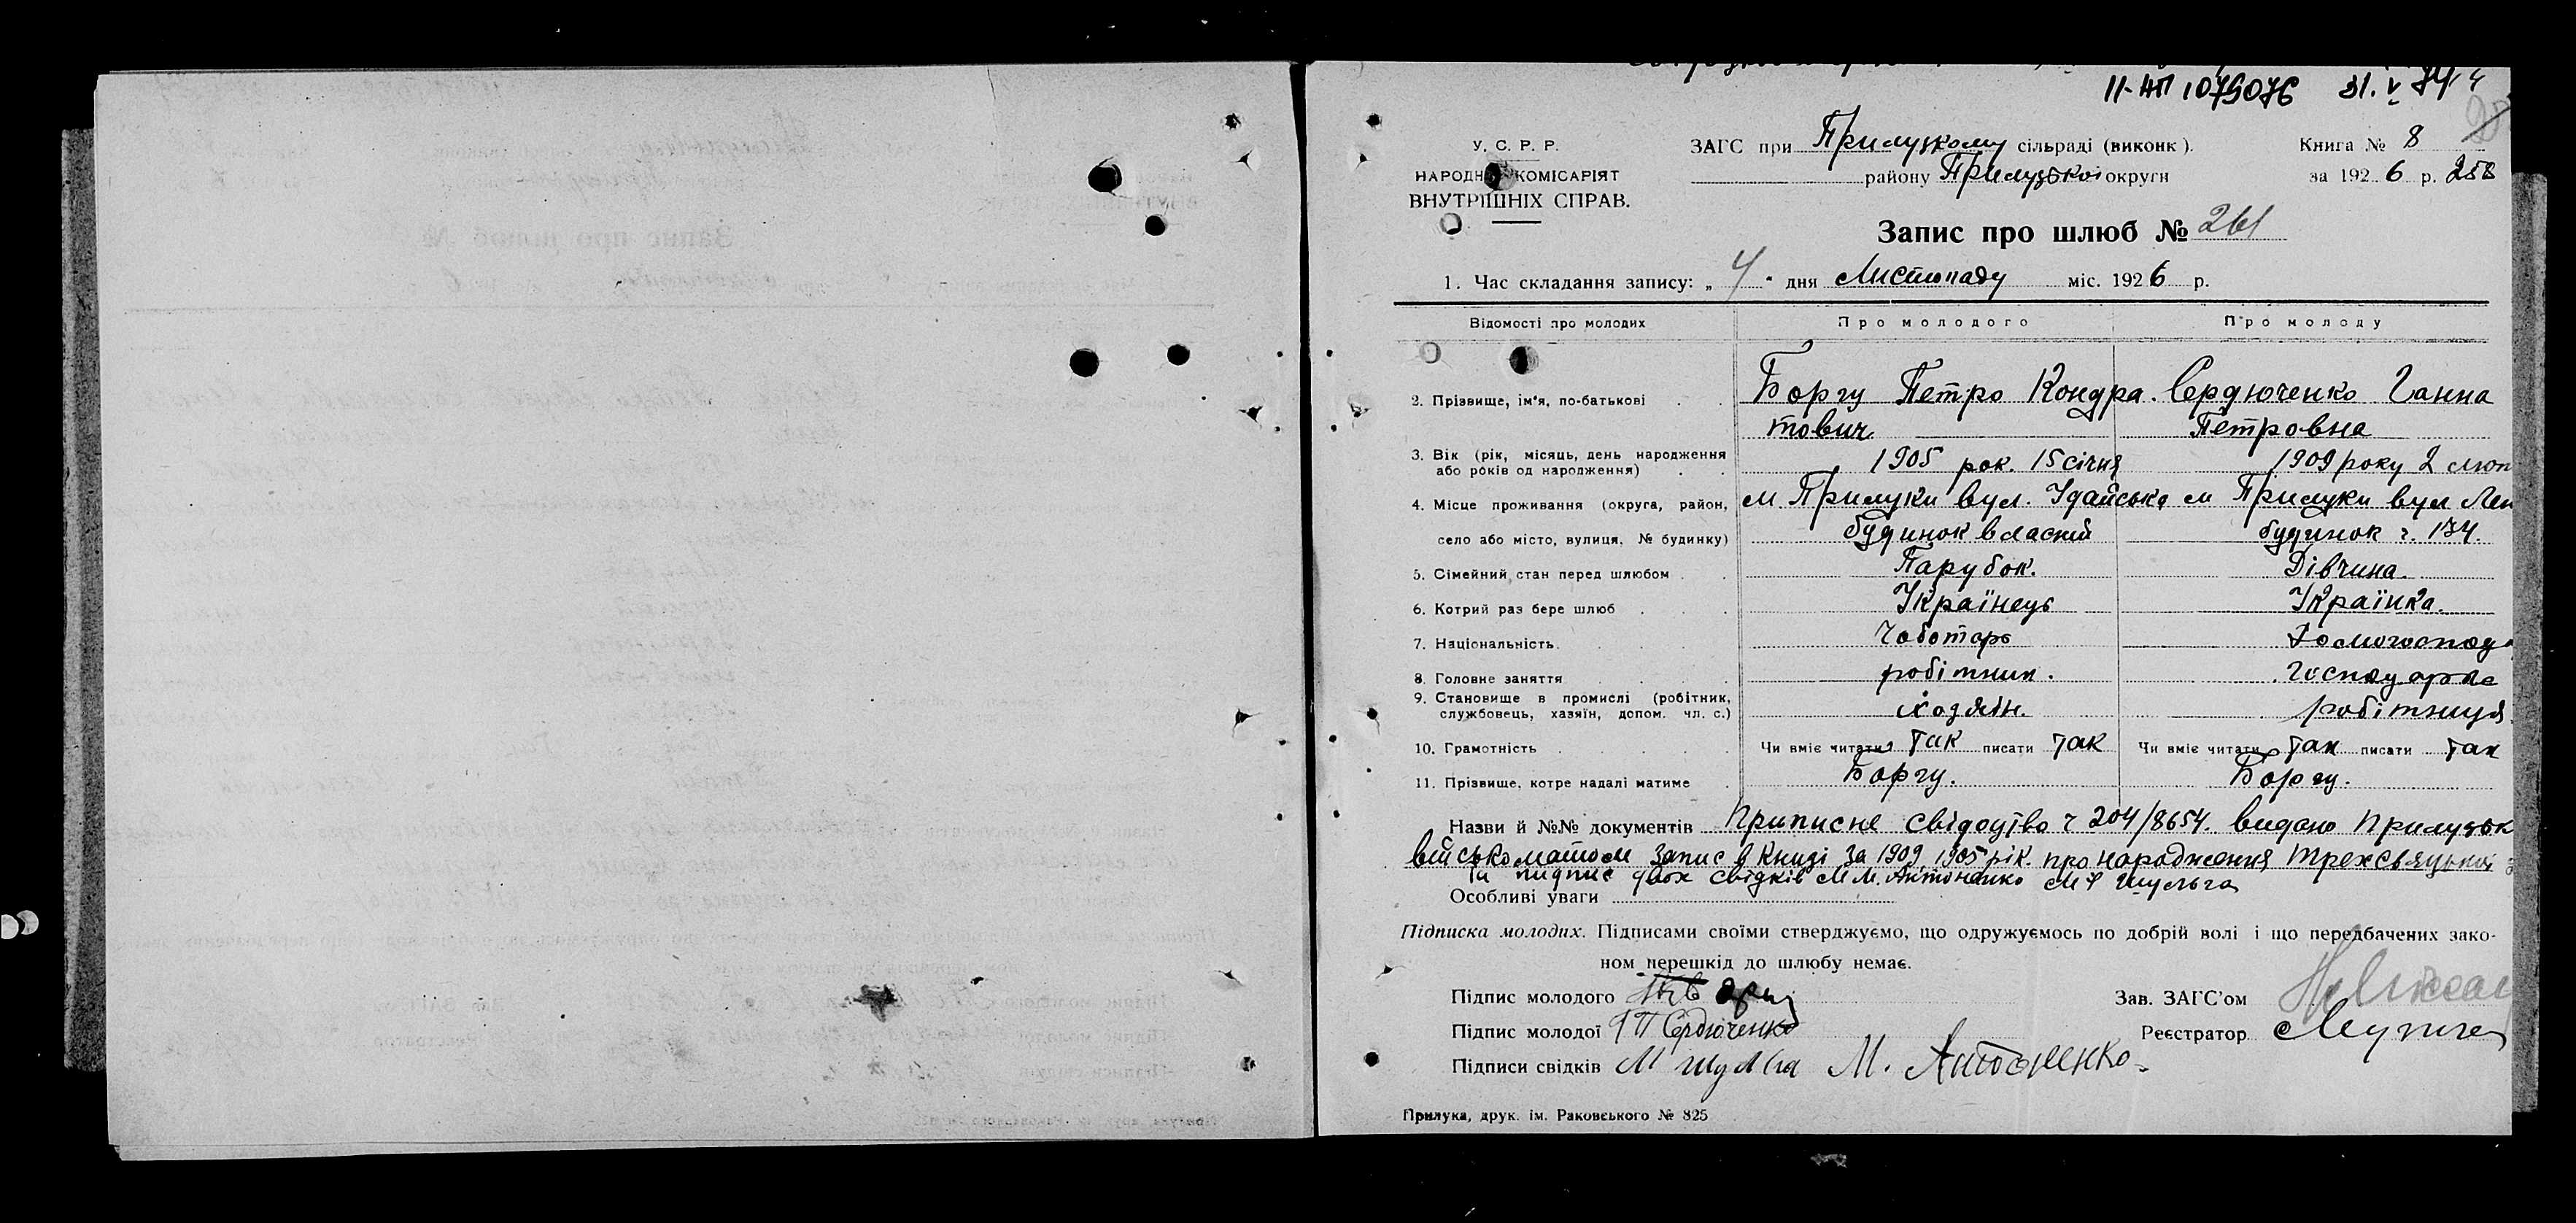 II-НП 1079076 31.V 74
У. С. Р. Р.
НАРОДНІЙ КОМІСАРІЯТ
ВНУТРІШНІХ СПРАВ.
ЗАГС при Прилуцкому сільраді (виконк).
району Прилуцької округи
Книга № 8
за 1926 р. 258
Запис про шлюб № 261
1. Час складання запису: „4" дня Листопаду міс. 1926 р.
Відомості про молодих Про молодого Про молоду
2. Прізвище, ім'я, по-батькові . . Боргу Петро Кондра. Сердюченко Ганна
тович Петровна
3. Вік (рік, місяць, день народження 1905 рок. 15 січня 1909 року 2 лют
або років од народження) . .
4. Місце проживання (округа, район, м. Прилуки вул. Удайська м Прилуки вул Лен
село або місто, вулиця, № будинку) будинок власний будинок ч. 134.
5. Сімейний стан перед шлюбом . . Парубок. Дівчина.
6. Котрий раз бере шлюб . . Українець Українка.
7. Національність. . . . . Чоботарь Домогоспод
8. Головне заняття . . . . робітник. господарка
9. Становище в промислі (робітник,
службовець, хазяїн, допом. чл. с.) хозяїн. робітниця
10. Грамотність . . . . . Чи вміє читати так писати так Чи вміє читати так писати так
11. Прізвище, котре надалі матиме . Боргу. Боргу.
Назви й №№ документів Приписне свідоцтво ч 204/8654. видано Прилуцьк
військоматом запис в книзі за 1909 1905 рік. про народження Трехсвяцької
та підпис двох свідків М М. Антоненко М Ф Шульга
Особливі уваги
Підписка молодих. Підписами своїми стверджуємо, що одружуємось по добрій волі і що передбачених зако-
ном перешкід до шлюбу немає.
Підпис молодого
Зав. ЗАГС'ом
Підпис молодої Г П Сердюченко
Реєстратор
Підписи свідків М Шульга М. Антоненко
Прилука, друк. ім. Раковського № 825